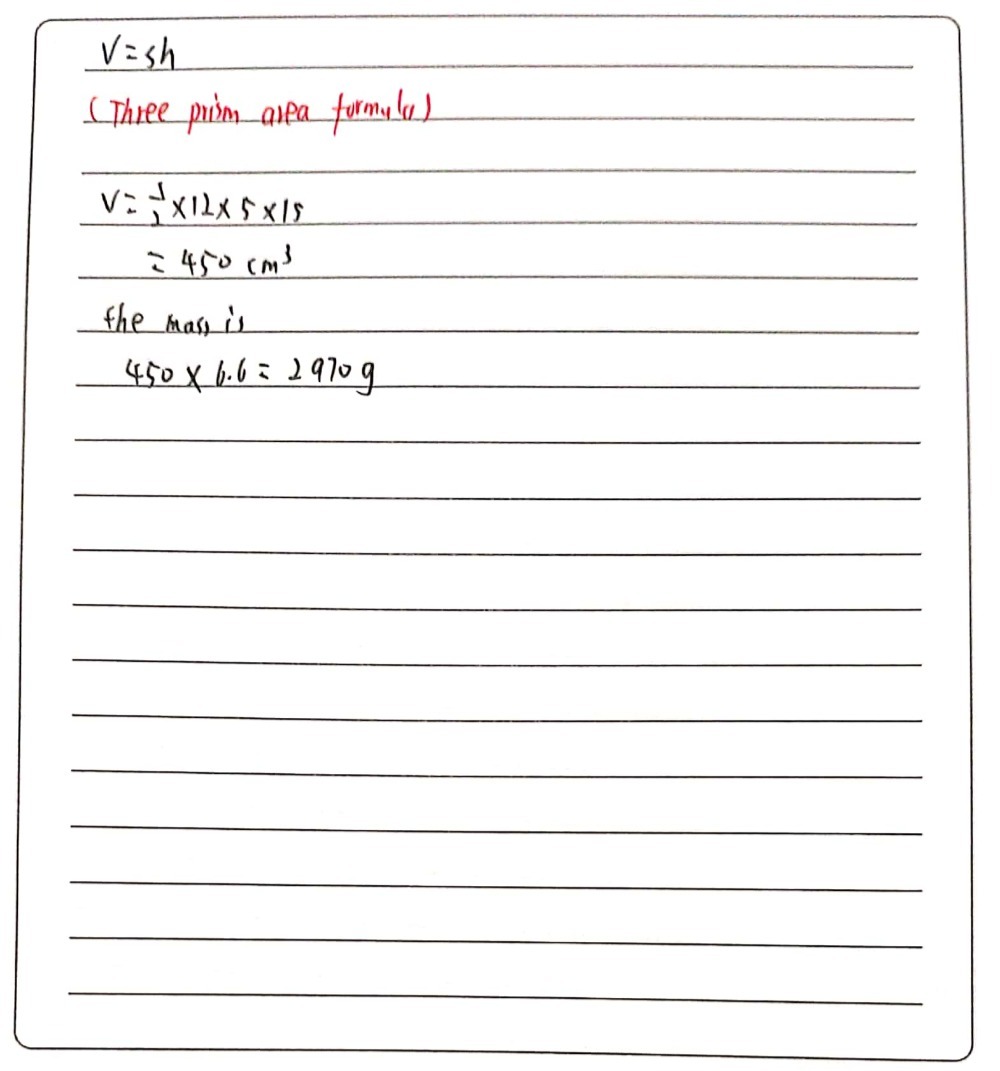 V=sh
(Three prism area formula)
V=½×12×5×15
=450 cm³
the mass is
450×6.6=2970g